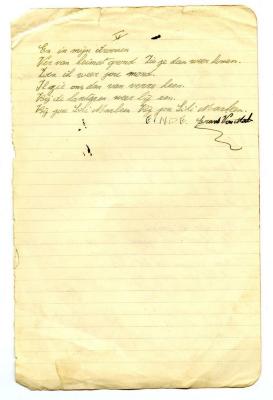 V
En in mijn droomen
Ver van heimat grond Zie je dan weer komen.
Zoen ik weer jou mond.
Ik zie ons dan van verre heen.
Bij de lantaren weer bij een.
Bij jou Lili Marleen Bij jou Lili Marleen.
EINDE